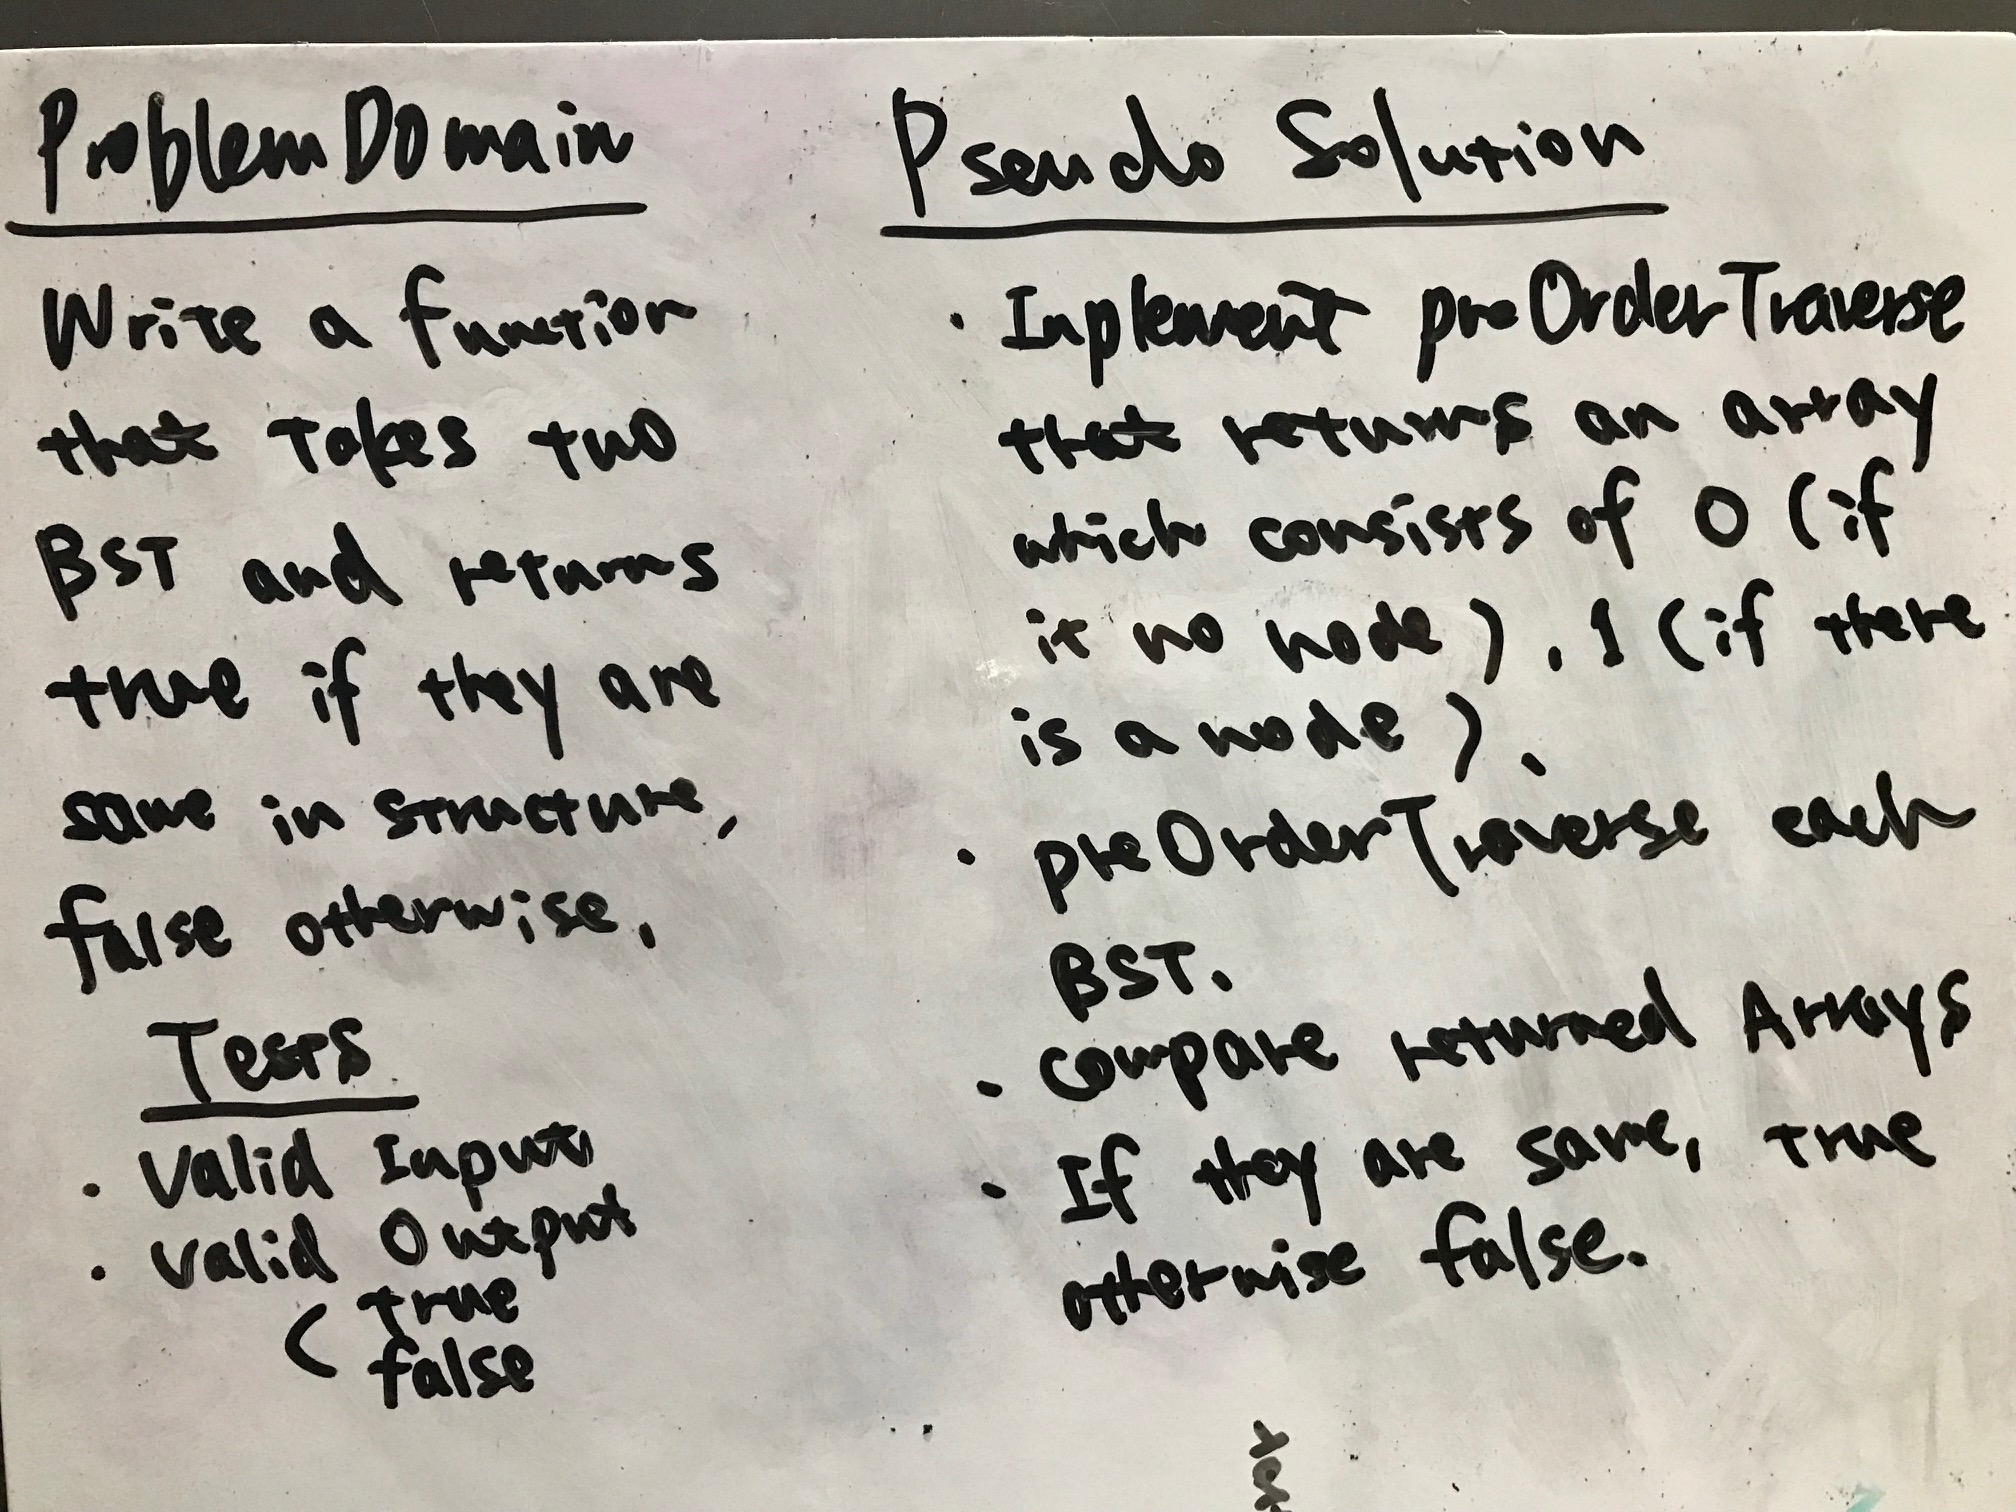 Problem Domain
Write a function
that takes two
BST and returns
true if they are
same in structure,
false otherwise,
Tests
· Valid Input
· Valid Output
( true
false
Pseudo Solution
· Inplement preOrderTraverse
that returns an array
which consists of 0 (if
it no node), 1 (if there
is a node).
· preOrderTraverse each
BST.
· compare returned Arrays
· If they are same, true
otherwise false.